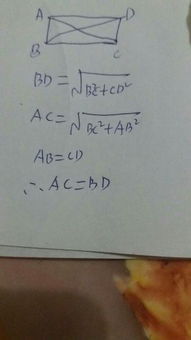 A D
B C
BD = √BC²+CD²
AC = √BC²+AB²
AB=CD
∴ AC=BD